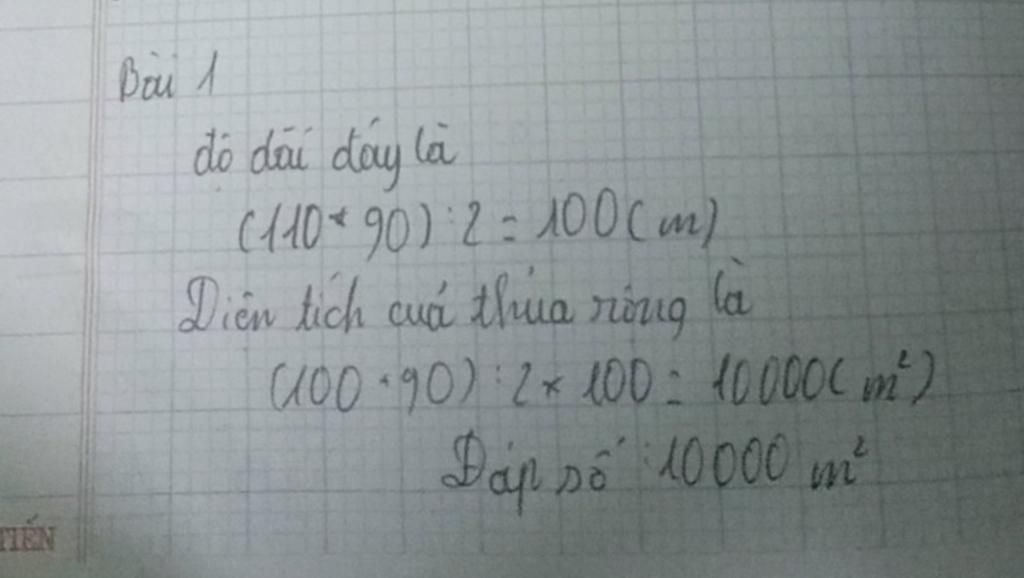 Bài 1
độ dài đáy là
(110+90):2=100(m)
Diện tích cuả thửa rộng là
(100+90):2×100=10000(m²)
Đáp số:10000 m²
TIẾN